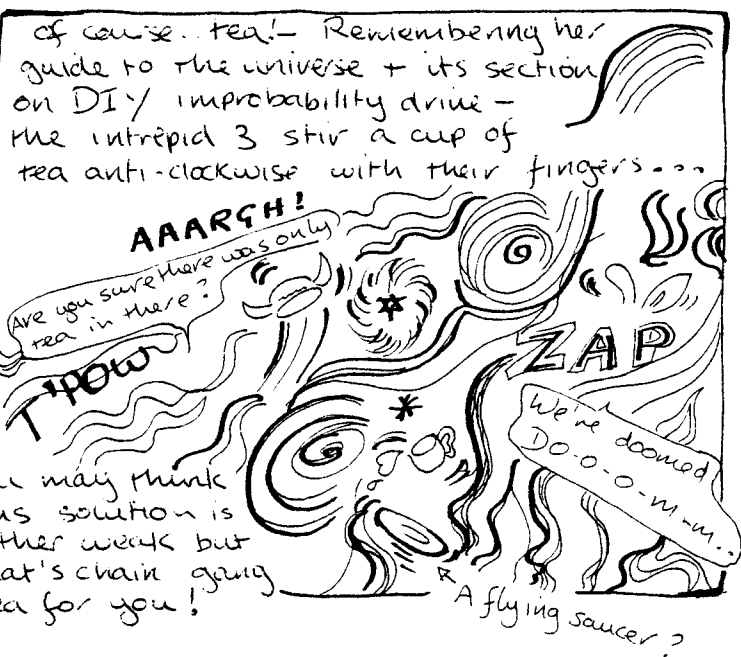 of course.. tea!- Remembering her
guide to the universe + its section
on DIY improbability drive -
the intrepid 3 stir a cup of
tea anti-clockwise with their fingers....
AAARGH!
Are you sure there was only
tea in there?
T'POW
ZAP
We're doomed
D-o-o-o-m-m..
may think
solution is
weak but
chain gang
for you!
A flying saucer?